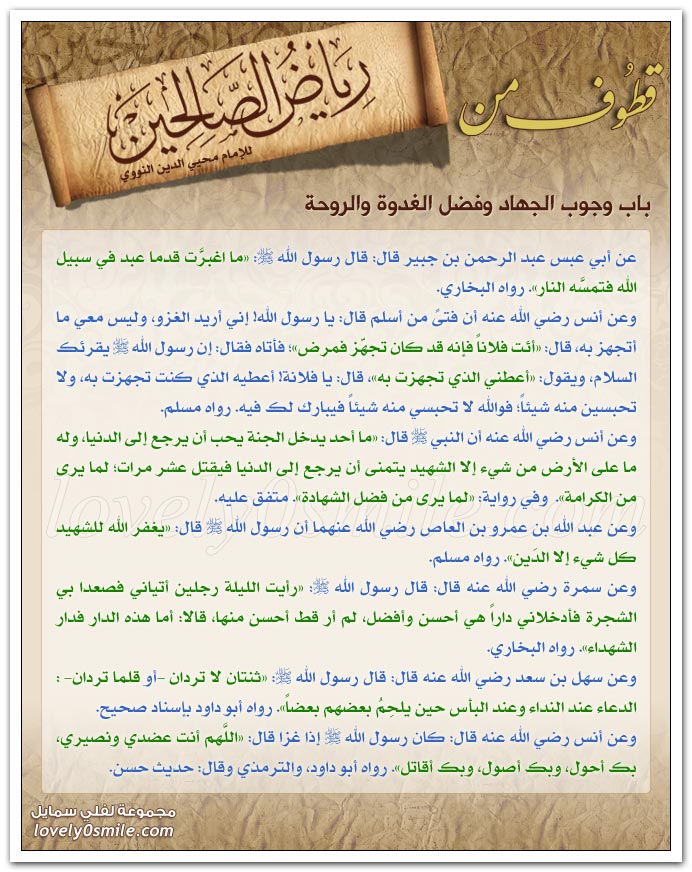 قطوف من
رِيَاضُ الصَّالِحِين
للإمام محيي الدين النووي
باب وجوب الجهاد وفضل الغدوة والروحة
عن أبي عبس عبد الرحمن بن جبير قال: قال رسول الله ﷺ: «ما اغبرَّت قدما عبد في سبيل
الله فتمسَّه النار». رواه البخاري.
وعن أنس رضي الله عنه أن فتىً من أسلم قال: يا رسول الله! إني أريد الغزو، وليس معي ما
أتجهز به، قال: «أئت فلاناً فإنه قد كان تجهّز فمرض»؛ فأتاه فقال: إن رسول الله ﷺ يقرئك
السلام، ويقول: «أعطني الذي تجهزت به»، قال: يا فلانة! أعطيه الذي كنت تجهزت به، ولا
تحبسين منه شيئاً؛ فوالله لا تحبسي منه شيئاً فيبارك لك فيه. رواه مسلم.
وعن أنس رضي الله عنه أن النبي ﷺ قال: «ما أحد يدخل الجنة يحب أن يرجع إلى الدنيا، وله
ما على الأرض من شيء إلا الشهيد يتمنى أن يرجع إلى الدنيا فيقتل عشر مرات؛ لما يرى
من الكرامة». وفي رواية: «لما يرى من فضل الشهادة». متفق عليه.
وعن عبد الله بن عمرو بن العاص رضي الله عنهما أن رسول الله ﷺ قال: «يغفر الله للشهيد
كل شيء إلا الدَين». رواه مسلم.
وعن سمرة رضي الله عنه قال: قال رسول الله ﷺ: «رأيت الليلة رجلين أتياني فصعدا بي
الشجرة فأدخلاني داراً هي أحسن وأفضل، لم أر قط أحسن منها، قالا: أما هذه الدار فدار
الشهداء». رواه البخاري.
وعن سهل بن سعد رضي الله عنه قال: قال رسول الله ﷺ: «ثنتان لا تردان -أو قلما تردان- :
الدعاء عند النداء وعند البأس حين يلحِمُ بعضهم بعضاً». رواه أبو داود بإسناد صحيح.
وعن أنس رضي الله عنه قال: كان رسول الله ﷺ إذا غزا قال: «اللَّهم أنت عضدي ونصيري،
بك أحول، وبك أصول، وبك أقاتل». رواه أبو داود، والترمذي وقال: حديث حسن.
lovely0smile.com
مجموعة لفلي سمايل
lovely0smile.com